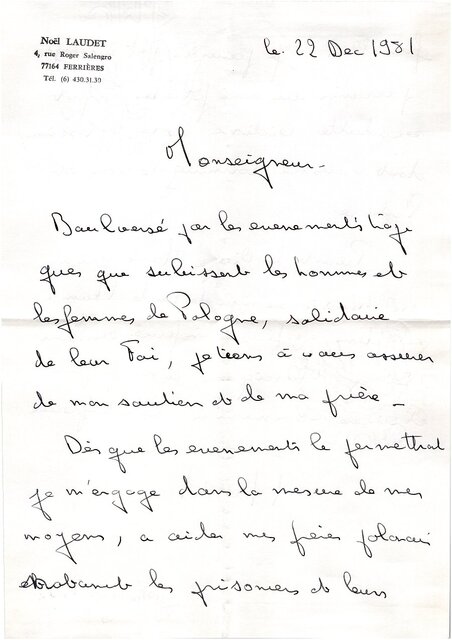 Noël LAUDET
4, rue Roger Salengro
77164 FERRIÈRES
Tél. (6) 430.31.30
le 22 Dec 1981
Monseigneur -
Bouleversé par les evenements tragi
ques que subissent les hommes et
les femmes de Pologne, solidaire
de leur Foi, je tiens à vous assurer
de mon soutien et de ma prière -
Dès que les evenements le permettront
je m'engage dans la mesure de mes
moyens, a aider mes frères polonais
les prisonniers et leurs